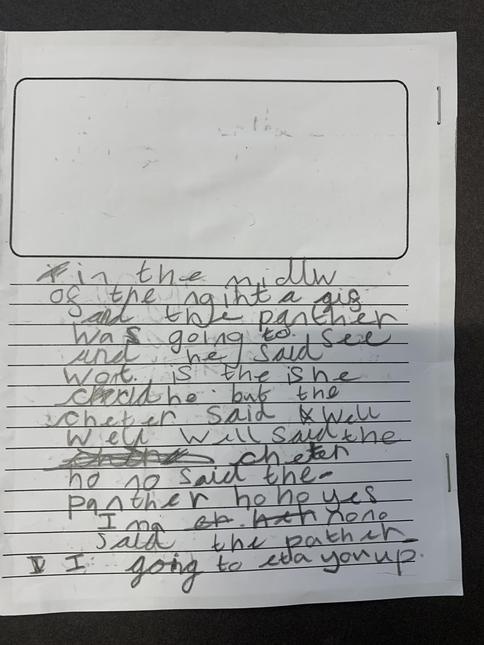 in the midlw
of the nginht a gig
said the panther
was going to see
and he said
wort is the ishe
he but the
cheter said Well
Well Will said the
cheter
no no said the
panther ho ho yes
I ma nono
said the pather
I going to eta yonup.